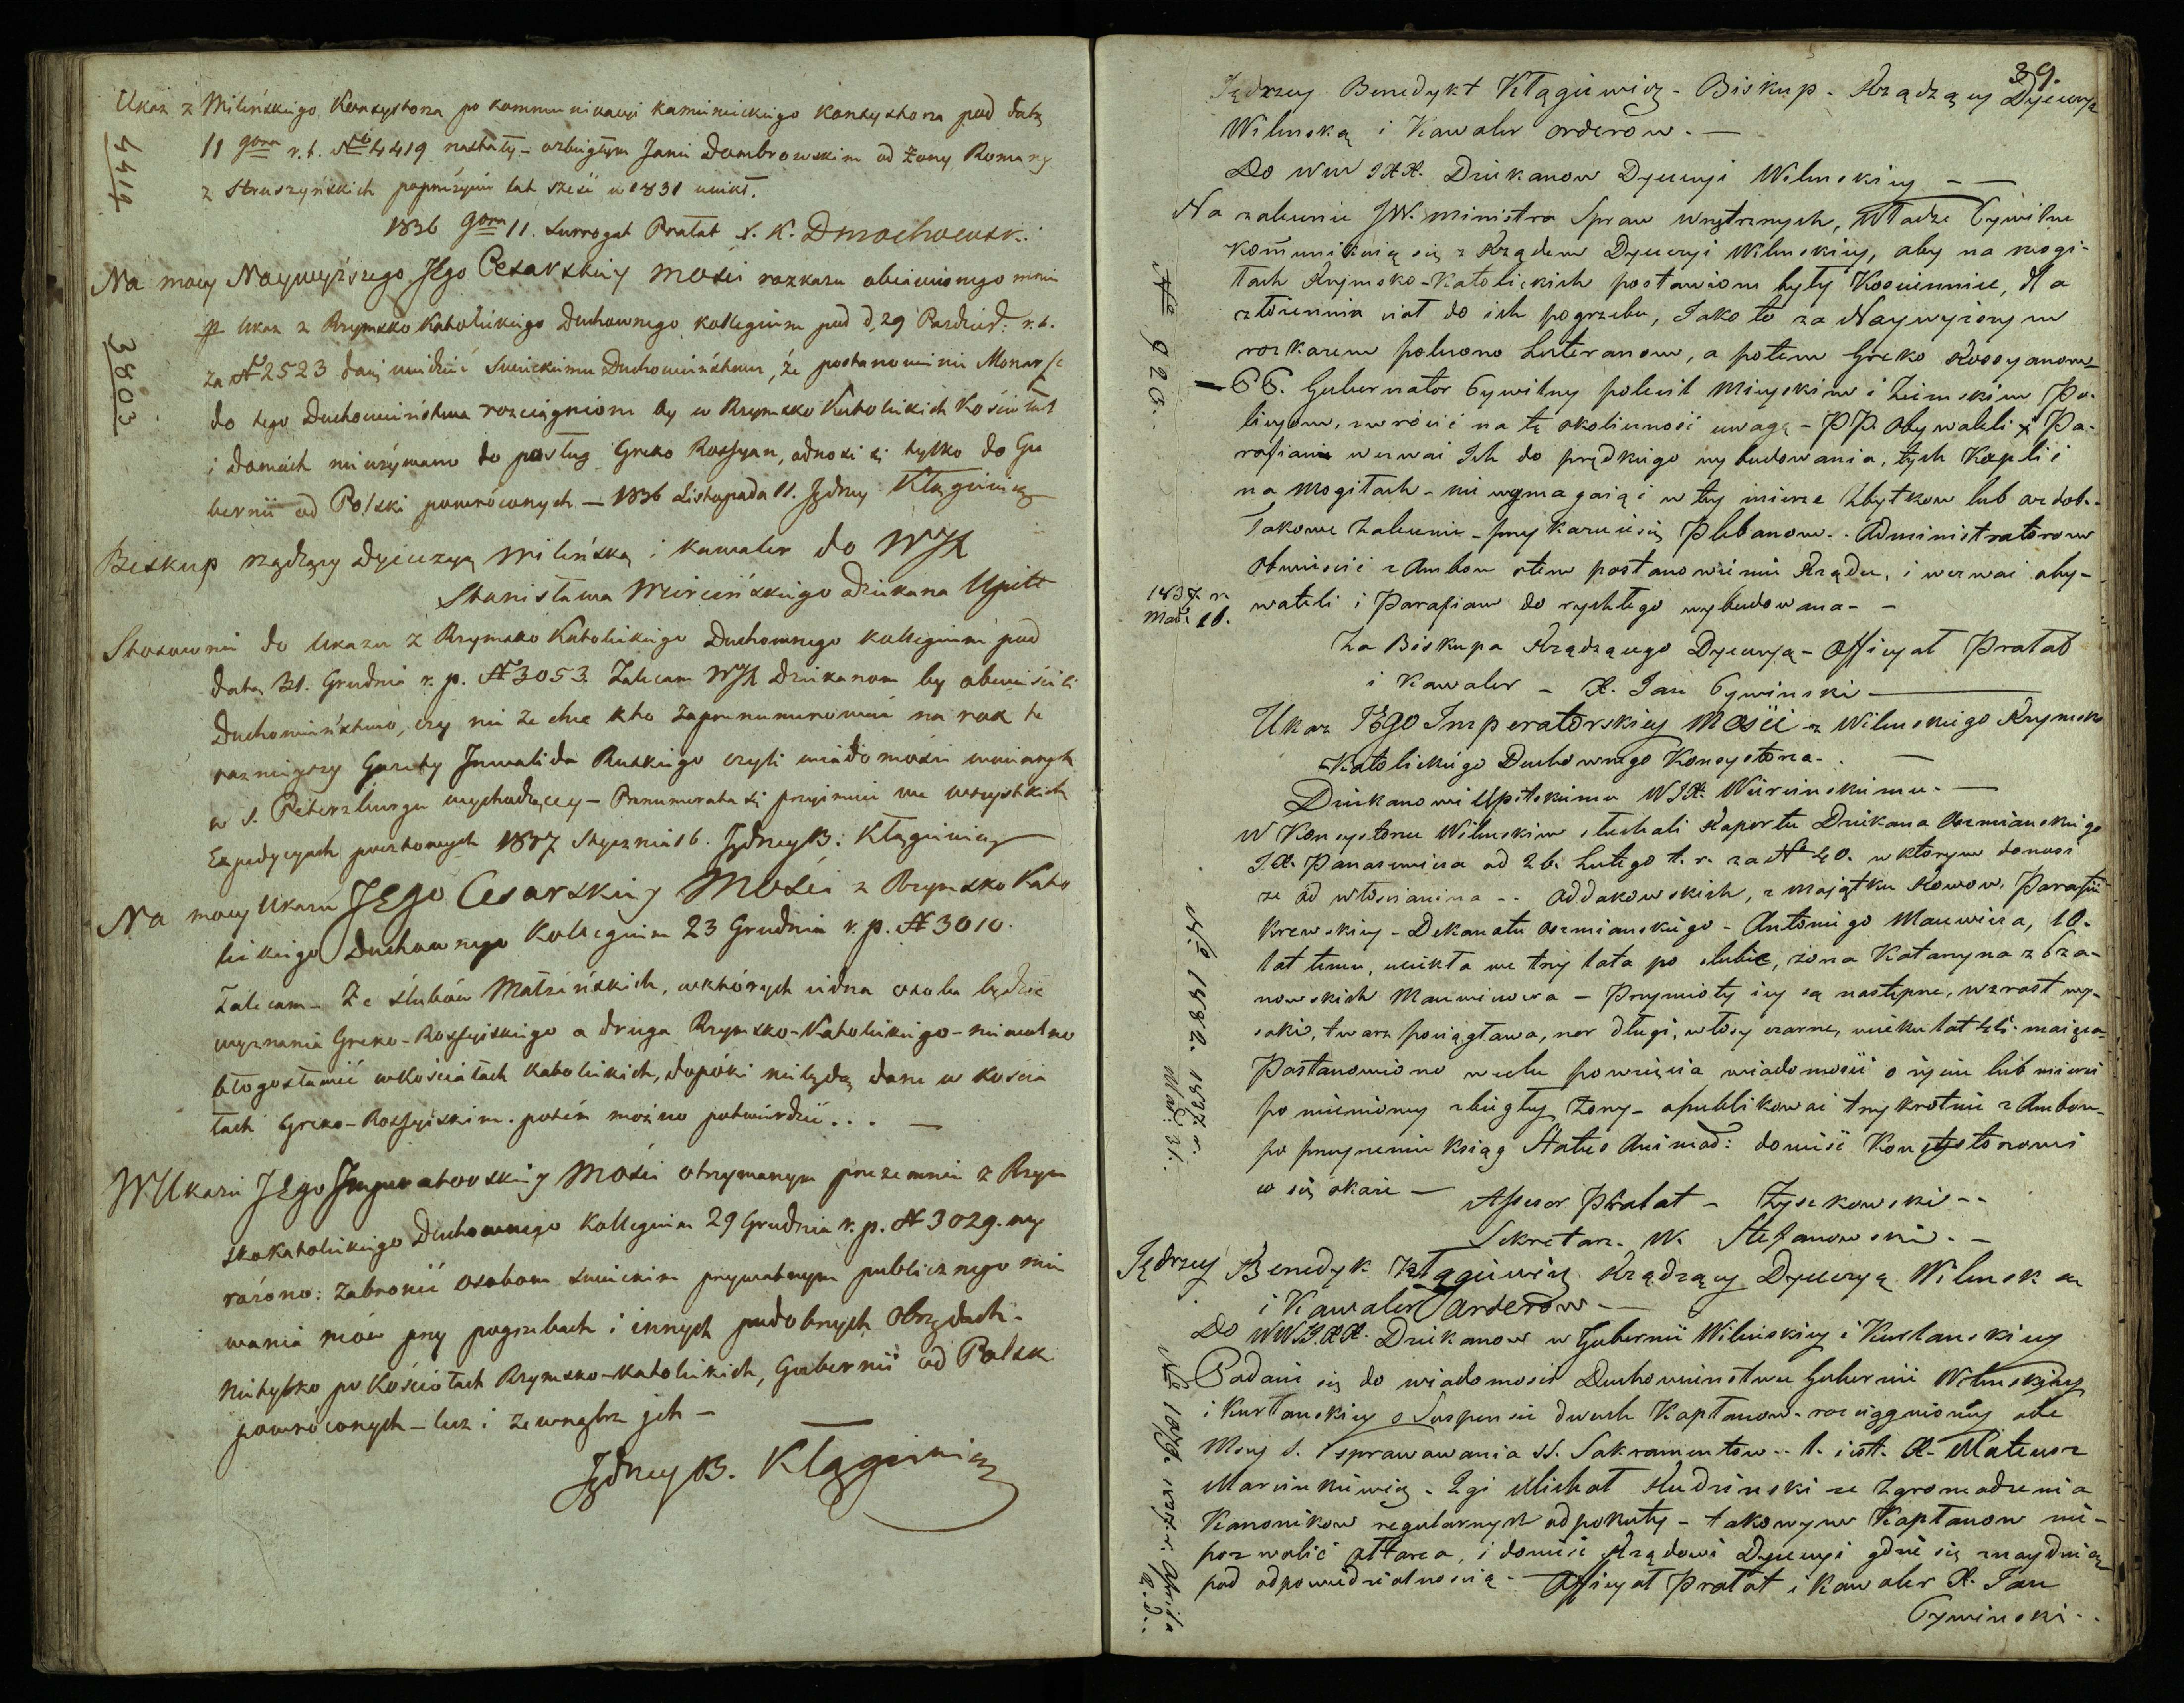 Ukaz z Wileńskiego Konsystorza po kommunikacyi kamienieckiego konsystorza pod datą
4419
11 9bra r. t. No 4419 nastały - o zbiegłym Janie Dombrowskim od żony Romany
z Struszyńskich poprzeżyciu lat sześć w 1831 uciekł.
1836 9bra 11. Surrogat Prałat X. K. Dmochowski
Na mocy Naywyższego JEgo Cesarskiey Mości rozkazu obiawionego mnie
pz Ukaz z Rzymsko Katolickiego Duchownego kollegium pod d. 29 Paździer: r. t.
3803
za N 2523 daię wiedzieć Swieckiemu Duchowieństwu, że postanowienie Monarsze
do tego Duchowieństwa rozciągnione by w Rzymsko Katolickich Kościołach
i domach nieużywano do posług Greko Rossyan, odnosi si tylko do Gu
bernii od Polski powróconych - 1836 Listopada 11. Jędrzey Kłągiewicz
Biskup rządzący dyecezyą Wileńską i kawaler do WJX
Stanisława Mierzeińskiego dziekana Upitt
Stosownie do Ukazu z Rzymsko Katolickiego Duchownego kollegium pod
datą 31. Grudnia r. p. N 3053. Zalecam WJX Dziekanom by obwieścili
Duchowieństwo, czy nie ze chce kto zaprenumerować na rok te
raznieyszy Gazety Inwalida Ruskiego czyli wiadomości woiennych
w S. Petersburgu wychodzącey - Prenumerata si przyimuie we wszystkich
Expedycyach pocztowych 1837 Stycznia 16. Jędrzey B: Kłągiewicz
Na mocy Ukazu JEgo Cesarskiey Mości z Rzymsko Kato
lickiego Duchownego Kollegium 23 Grudnia r. p. N 3010.
Zalecam - Ze slubów Małżeńskich, w których iedna osoba będzie
wyznania Greko-Rossyiskiego a druga Rzymsko-Katolickiego - niewolno
błogosławić w Kościołach Katolickich, dopóki niebędą dane w Kościo
łach Greko-Rossyiskim. potém można potwierdzić . . . -
W Ukazie JEgo Imperatorskiey Mości otrzymanym przezemnie z Rzym
skokatolickiego Duchownego Kollegium 29 Grudnia r. p. N 3029. wy
rażono: Zabronić osobom swieckim prywatnym publicznego mie
wania mów przy pogrzebach i innych podobnych obrzędach -
nietylko po Kościołach Rzymsko-Katolickich, Gubernii od Polski
powróconych - lecz i zewnątrz jch -
Jędrzey B. Kłągiewicz
39.
Jędrzey Benedykt Kłągiewicz - Biskup - Rządzący Dyecezyą
Wilenską i Kawaler orderow. -
Do WW JXX. Dziekanow Dyecezyi Wilenskiey - -
Na zalecenie JW. Ministra Spraw Wnętrznych, Władze Cywilne
kommunikuią się z Rządem Dyecezyi Wilenskiey, aby na mogi-
łach Rzymsko-Katolickich postawione były Kostnice, dla
No 926.
złożenia ciał do ich pogrzebu, Jako to za Naywyższym
rozkazem polecono Luteranom, a potem Greko Rossyanom -
- Gubernator Cywilny polecił Mieyskim i Ziemskim Po-
licyom, zwrócić na tę okoliczność uwagę - PP. Obywateli i Pa-
rafian wezwać Ich do prędkiego wybudowania, tych Kaplic
na Mogiłach - nie wymagaiąc w tey mierze zbytkow lub ozdob -
Takowe zalecenie - przykazuie się Plebanow - Administratorow
Obwieścić z Ambon otem postanowieniu Rządu, i wezwać oby-
1837 r.
Mar: 16.
wateli i Parafian do rychłego wybudowana - -
Za Biskupa Rządzącego Dyecezyą - Officyał Prałat
i Kawaler - X. Jan Cywinski -
Ukaz JEgo Imperatorskiey Mości z Wilenskiego Rzymsko
Katolickiego Duchownego Konsystorza - -
Dziekanowi Upitskiemu WJX. Wiercinskiemu -
W Konsystorzu Wilenskim słuchali Raportu Dziekana Oszmianskiego
JX. Panasewicza od 26. Lutego t. r. za N 40. w ktorym donosi
że od włościanina - - Oddakowskich, z Majątku Rowow, Parafii
No 1482. 1837 r. Mar: 31.
Krewskiey - Dekanatu Oszmianskiego - Antoniego Macewicza, 10.
lat temu, uciekła we trzy lata po slubie, żona Katarzyna z Cza-
nowskich Macewiczowa - Przymioty iey są następne, wzrost wy-
soki, twarz pociągława, nos długi, włosy czarne, wieku lat maiąca -
Postanowiono w celu powzięcia wiadomości o życiu lub mierci
po mienioney zbiegłey żony - opublikować trzykrotnie z Ambon -
po przeyrzeniu ksiąg Status Animad: donieść Konsystorzowi
co się okaże - Assesor Prałat - Zyszkowski - -
Sekretarz W. Stefanowski. -
Jędrzey Benedyk Kłągiewicz Rządzący Dyecezyą Wilenską
i Kawaler Orderow -
Do WW JXX. Dziekanow w Gubernii Wilenskiey i Kurlanskiey
Podaie się do wiadomosci Duchowienstwu Gubernii Wilenskiey
No 1075. 1837. r. Aprila 2. d.
i Kurlanskiey o Suspensie dwuch Kapłanow - rozciągnioney ode
Mszy S. i sprawowania SS. Sakramentow - - 1. iest. X. Mateusz
Marcinkiewicz - 2gi Michał Rudzinski ze Zgromadzenia
Kanonikow regularnych od pokuty - takowym Kapłanow nie -
pozwolić ołtarza, i donieść Rządowi Dyecezyi gdzie się znaydują
pod odpowiedzialnością - Officyał Prałat i Kawaler X. Jan
Cywinski - -